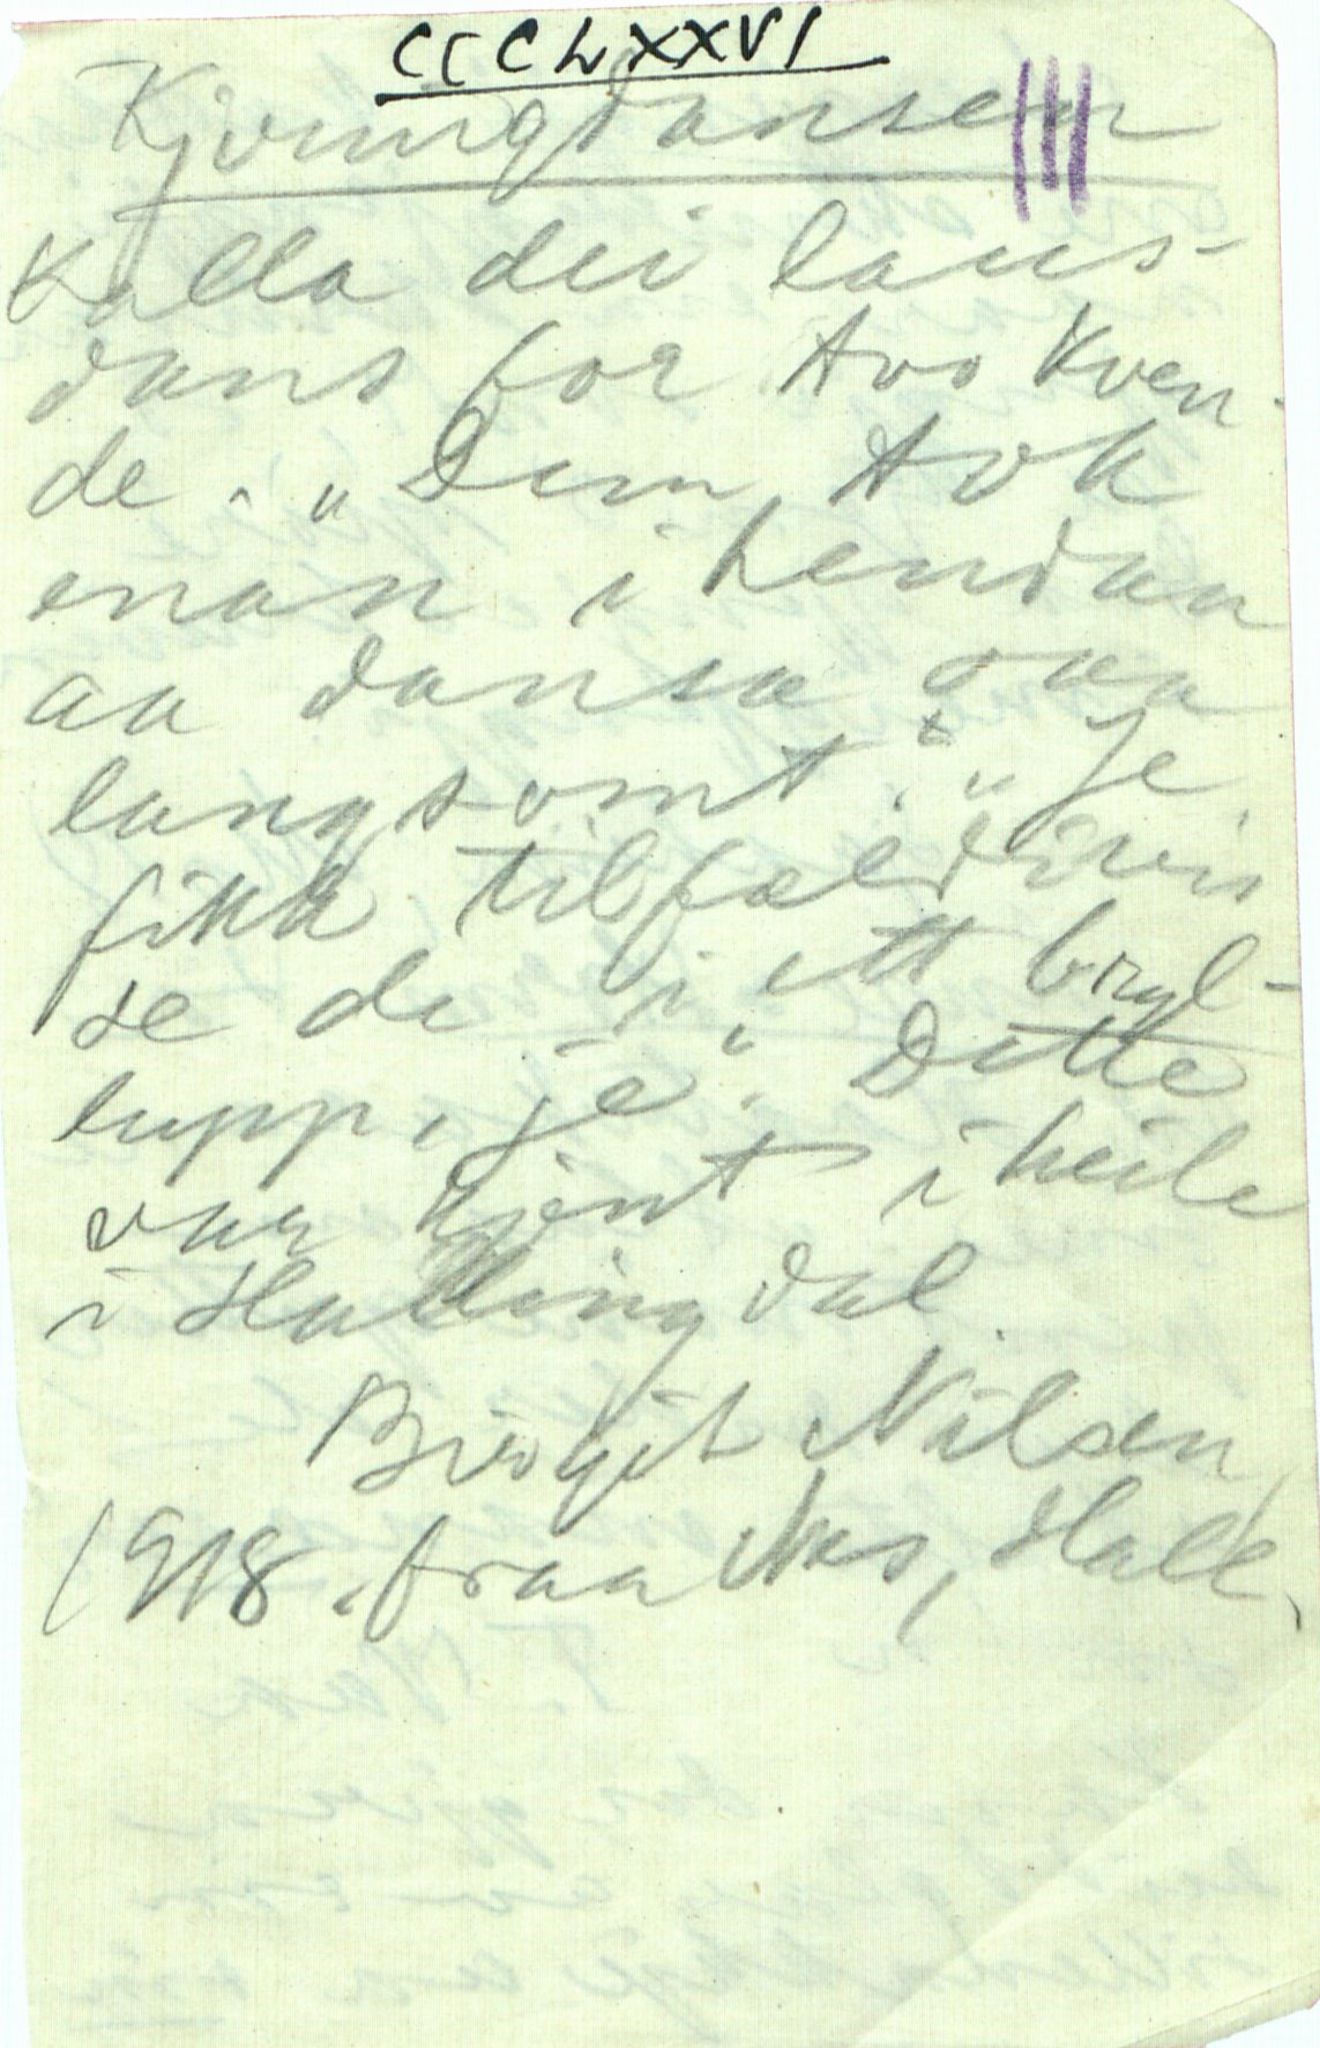 CCCLXXVI
Kjvringdansen
Kalla dei laus-
dans for tvo kven-
de. "Dem tok
enan i hendan
aa dansa saa
langsomt." "Je
fikk tilfældivis
se de i ett bryl-
lupp, je". Dette
var kjent i heile
i Hallingdal.
Birgit Nilsen
1918. fraa Aas, Hall.